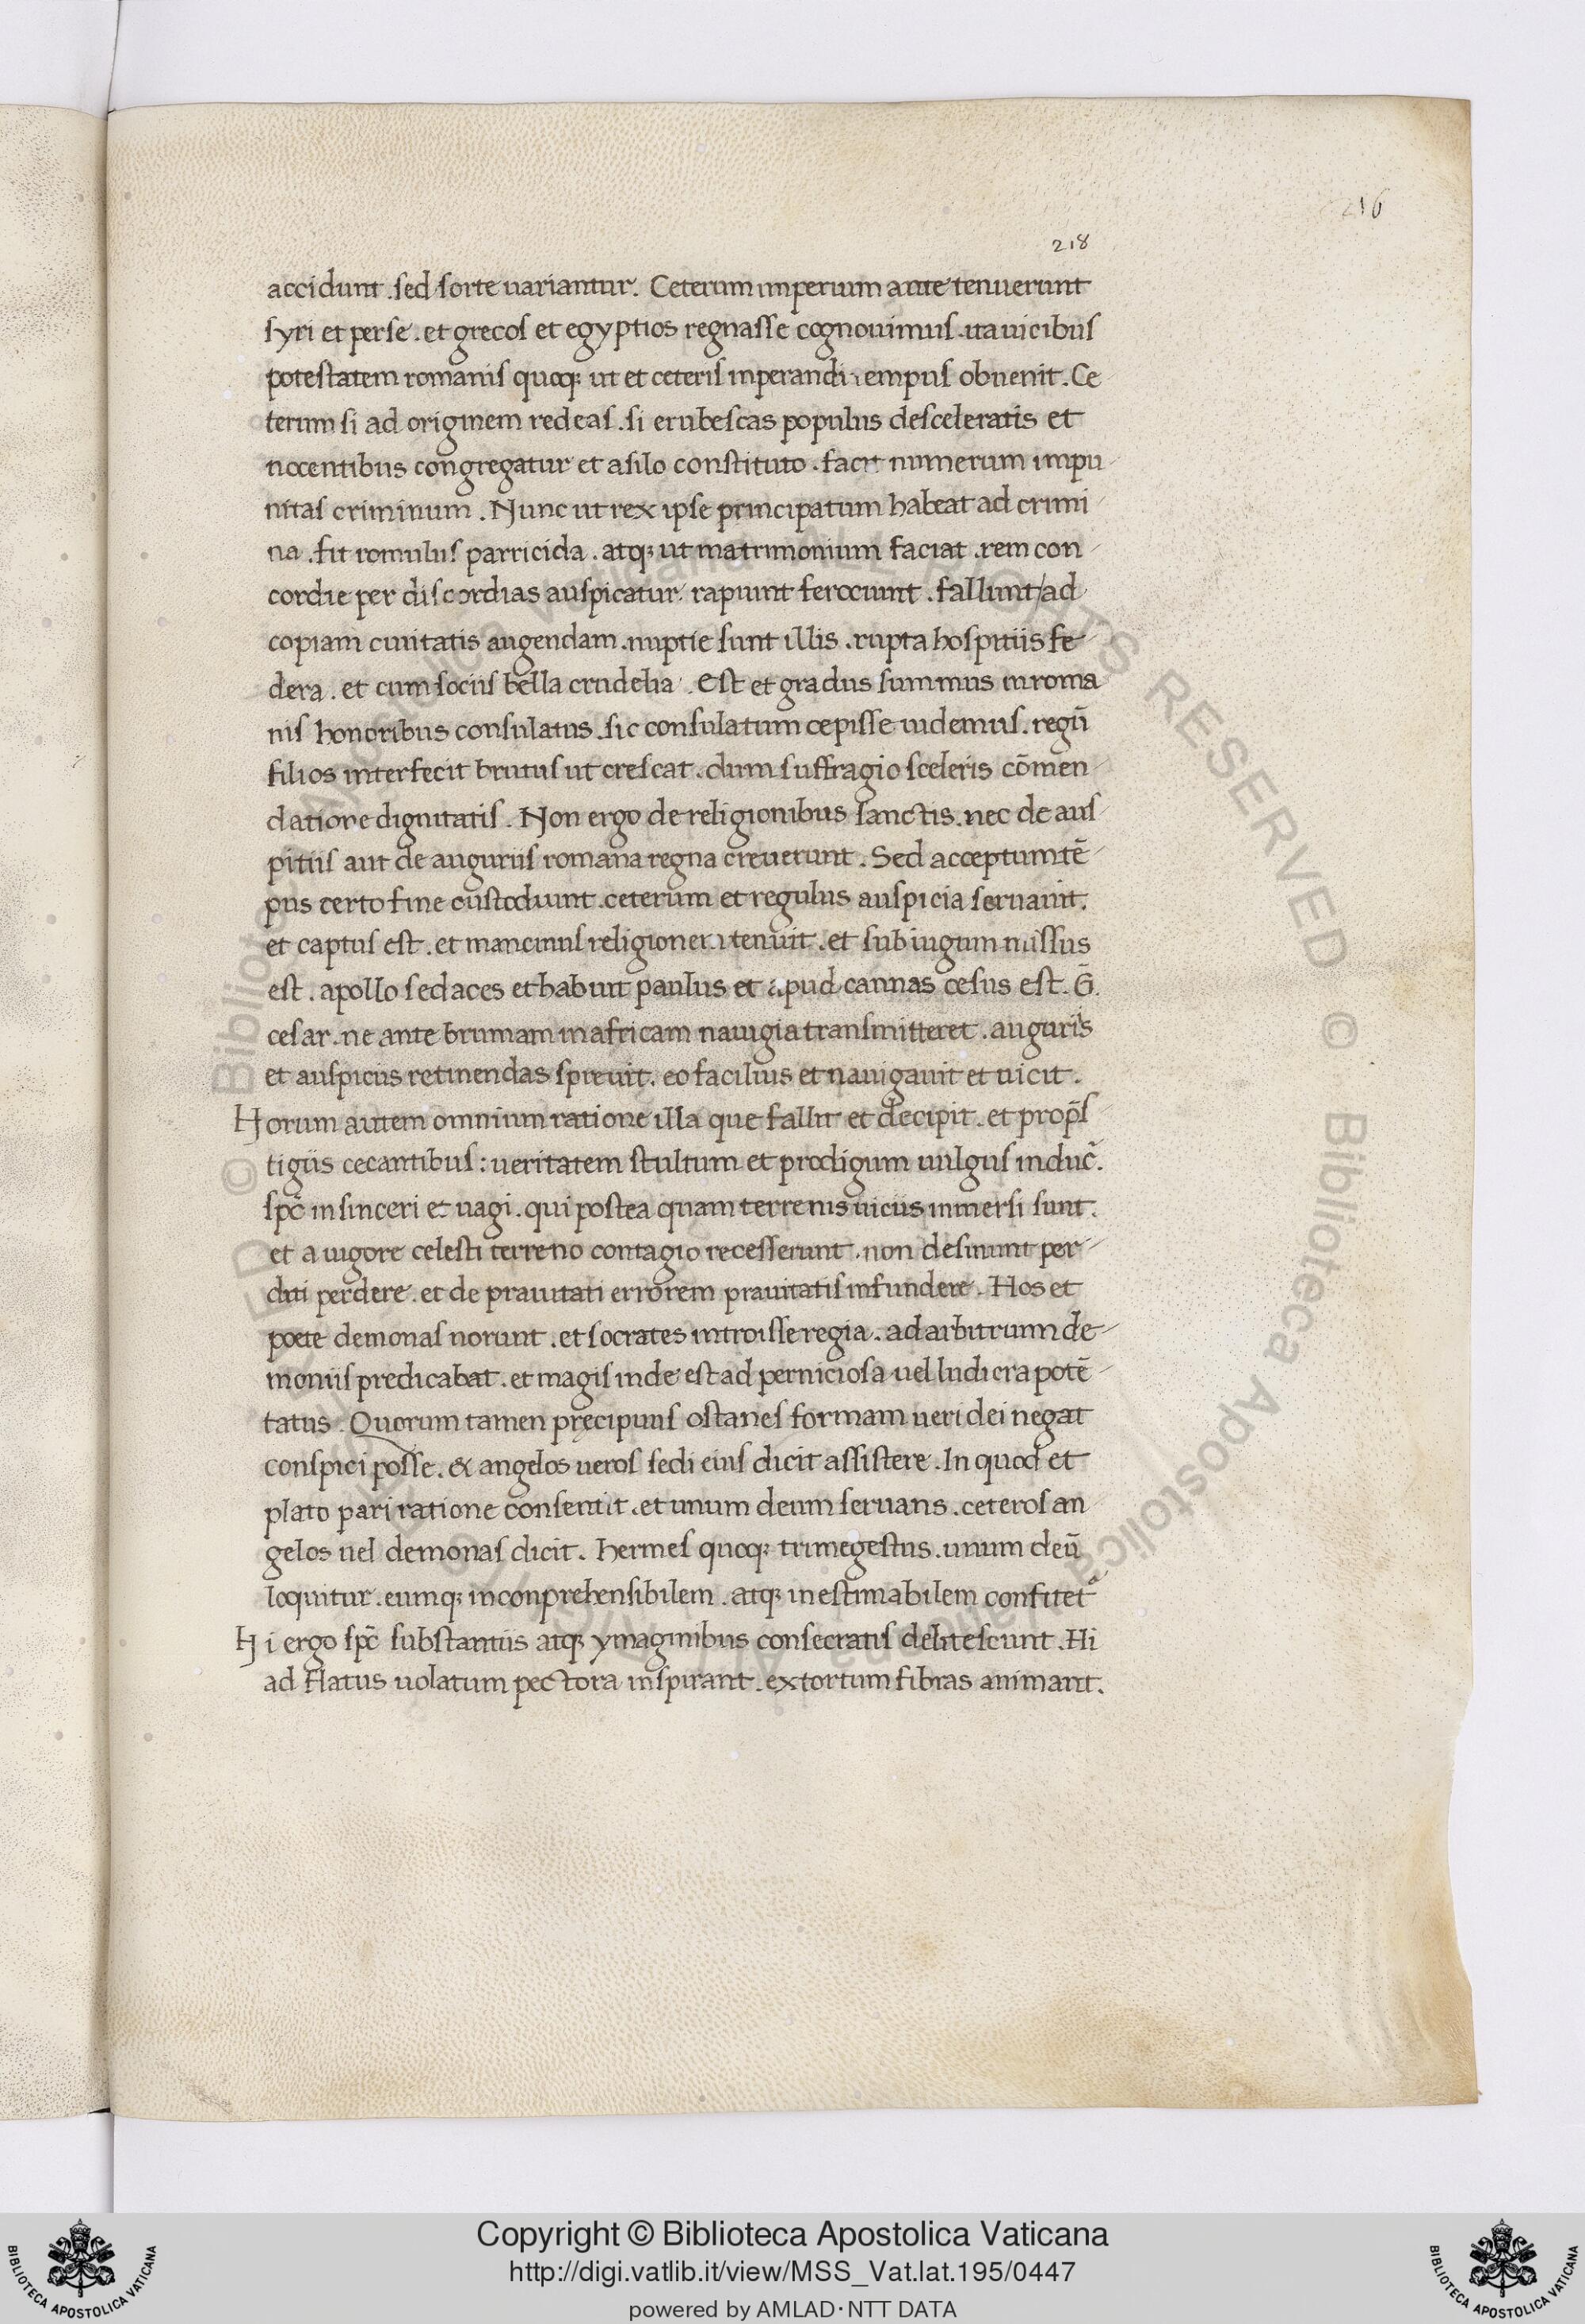 216
218
accidunt . sed sorte uariantur. Ceterum imperium ante tenuerunt
syri et perse . et grecos et egyptios regnasse cognouimus . ita uicibus
potestatem romanis quoq; ut et ceteris inperandi tempus obuenit . Ce
terum si ad originem redeas . si erubescas populus desceleratis et
nocentibus congregatur et asilo constituto . facit numerum impu-
nitas criminum . Nunc ut rex ipse principatum habeat ad crimi-
na . fit romulus parricida . atq; ut matrimonium faciat . rem con-
cordie per discordias auspicatur . rapiunt ferociunt . fallunt / ad
copiam ciuitatis augendam . nuptie sunt illis . rupta hospitiis fe-
dera . et cum sociis bella crudelia . Est et gradus summus in roma
nis honoribus consulatus . sic consulatum cepisse uidemus . regū
filios interfecit brutus ut crescat . dum suffragio sceleris cōmen-
datione dignitatis . Non ergo de religionibus sanctis . nec de aus-
pitiis aut de auguriis romana regna creuerunt . Sed acceptum tē-
pus certo fine custodiunt . ceterum et regulus auspicia seruauit.
et captus est . et mancinus religionem tenuit . et sub iugum missus
est . apollo sedaces et habuit paulus et apud cannas cesus est . G̅.
cesar . ne ante brumam in africam nauigia transmitteret . auguris
et auspiciis retinendas spreuit . eo facilius et nauigauit et uicit .
Horum autem omnium ratione illa que fallit et decipit . et prop̄s
tigiis cecantibus : ueritatem stultum et prodigum uulgus induc̄.
sp̄c insinceri et uagi . qui postea quam terrenis uiciis inmersi sunt .
et a uigore celesti terreno contagio recesserunt . non desinunt per-
diti perdere . et de prauitati errorem prauitatis infundere . Hos et
poete demonas norunt . et socrates introisse regia . ad arbitrium de-
moniis predicabat . et magis inde est ad perniciosa uel ludicra potē-
tatus . Quorum tamen pręcipuus ostanes formam ueri dei negat
conspici posse . & angelos ueros sedi eius dicit assistere . In quod et
plato pari ratione consentit . et unum deum seruans . ceteros an-
gelos uel demonas dicit . hermes quoq; trimegestus . unum deū
loquitur . eumq; inconprehensibilem . atq; inestimabilem confitet᷑
Hi ergo sp̄c substantiis atq; ymaginibus consecratis delitescunt . Hi
ad flatus uolatum pectora inspirant . extortum fibras animant.
Copyright © Biblioteca Apostolica Vaticana
http://digi.vatlib.it/view/MSS_Vat.lat.195/0447
powered by AMLAD·NTT DATA
BIBLIOTECA APOSTOLICA VATICANA
BIBLIOTECA APOSTOLICA VATICANA